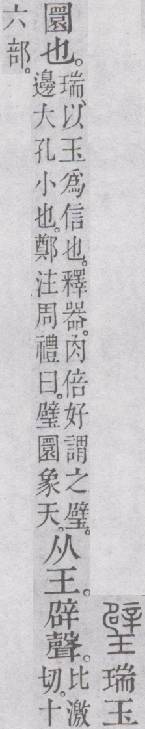 璧瑞玉
圜也。瑞、以玉爲信也。釋器。肉倍好謂之璧。
邊大孔小也。鄭注周禮曰。璧圜象天。
从王。辟聲。比激
切。十
六部。